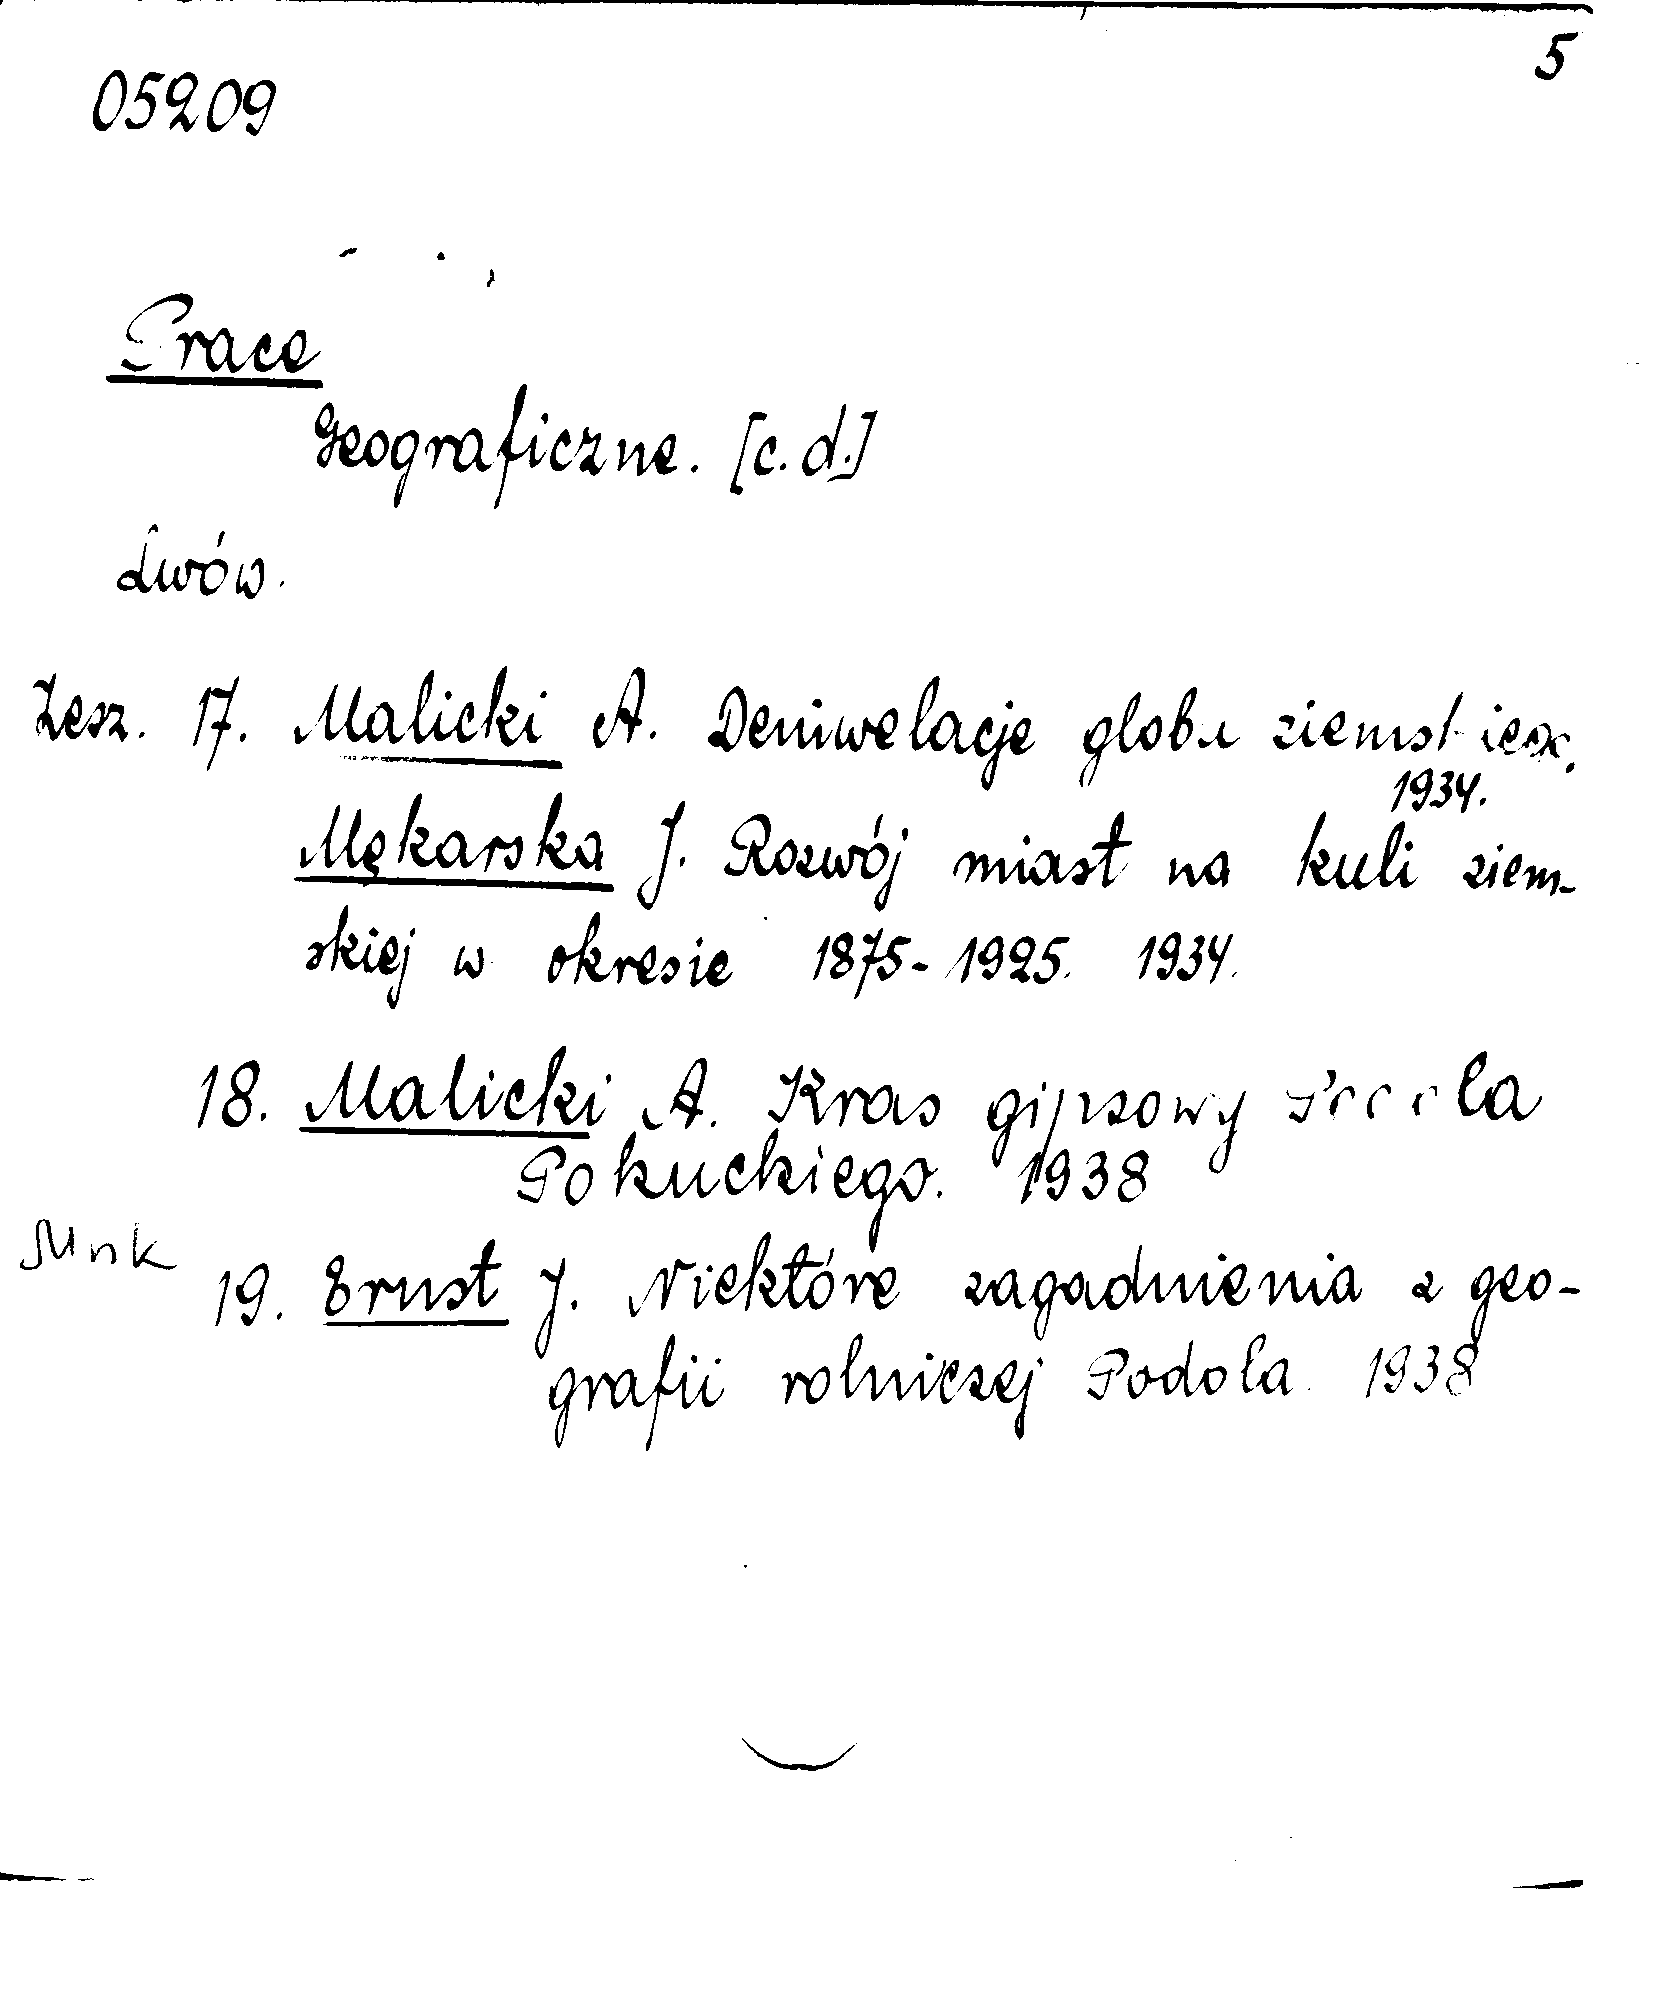 5
05209
Prace
Geograficzne. [c.d.]
Lwów.
Zesz. 17. Malicki A. Deniwelacje globu ziemskiego.
1934.
Mękarska J. Rozwój miast na kuli ziem-
skiej w okresie 1875-1925. 1934.
18. Malicki A. Kras gipsowy Podola
Pokuckiego. 1938
Mnk
19. Ernst J. Niektóre zagadnienia z geo-
grafii rolniczej Podola. 1938